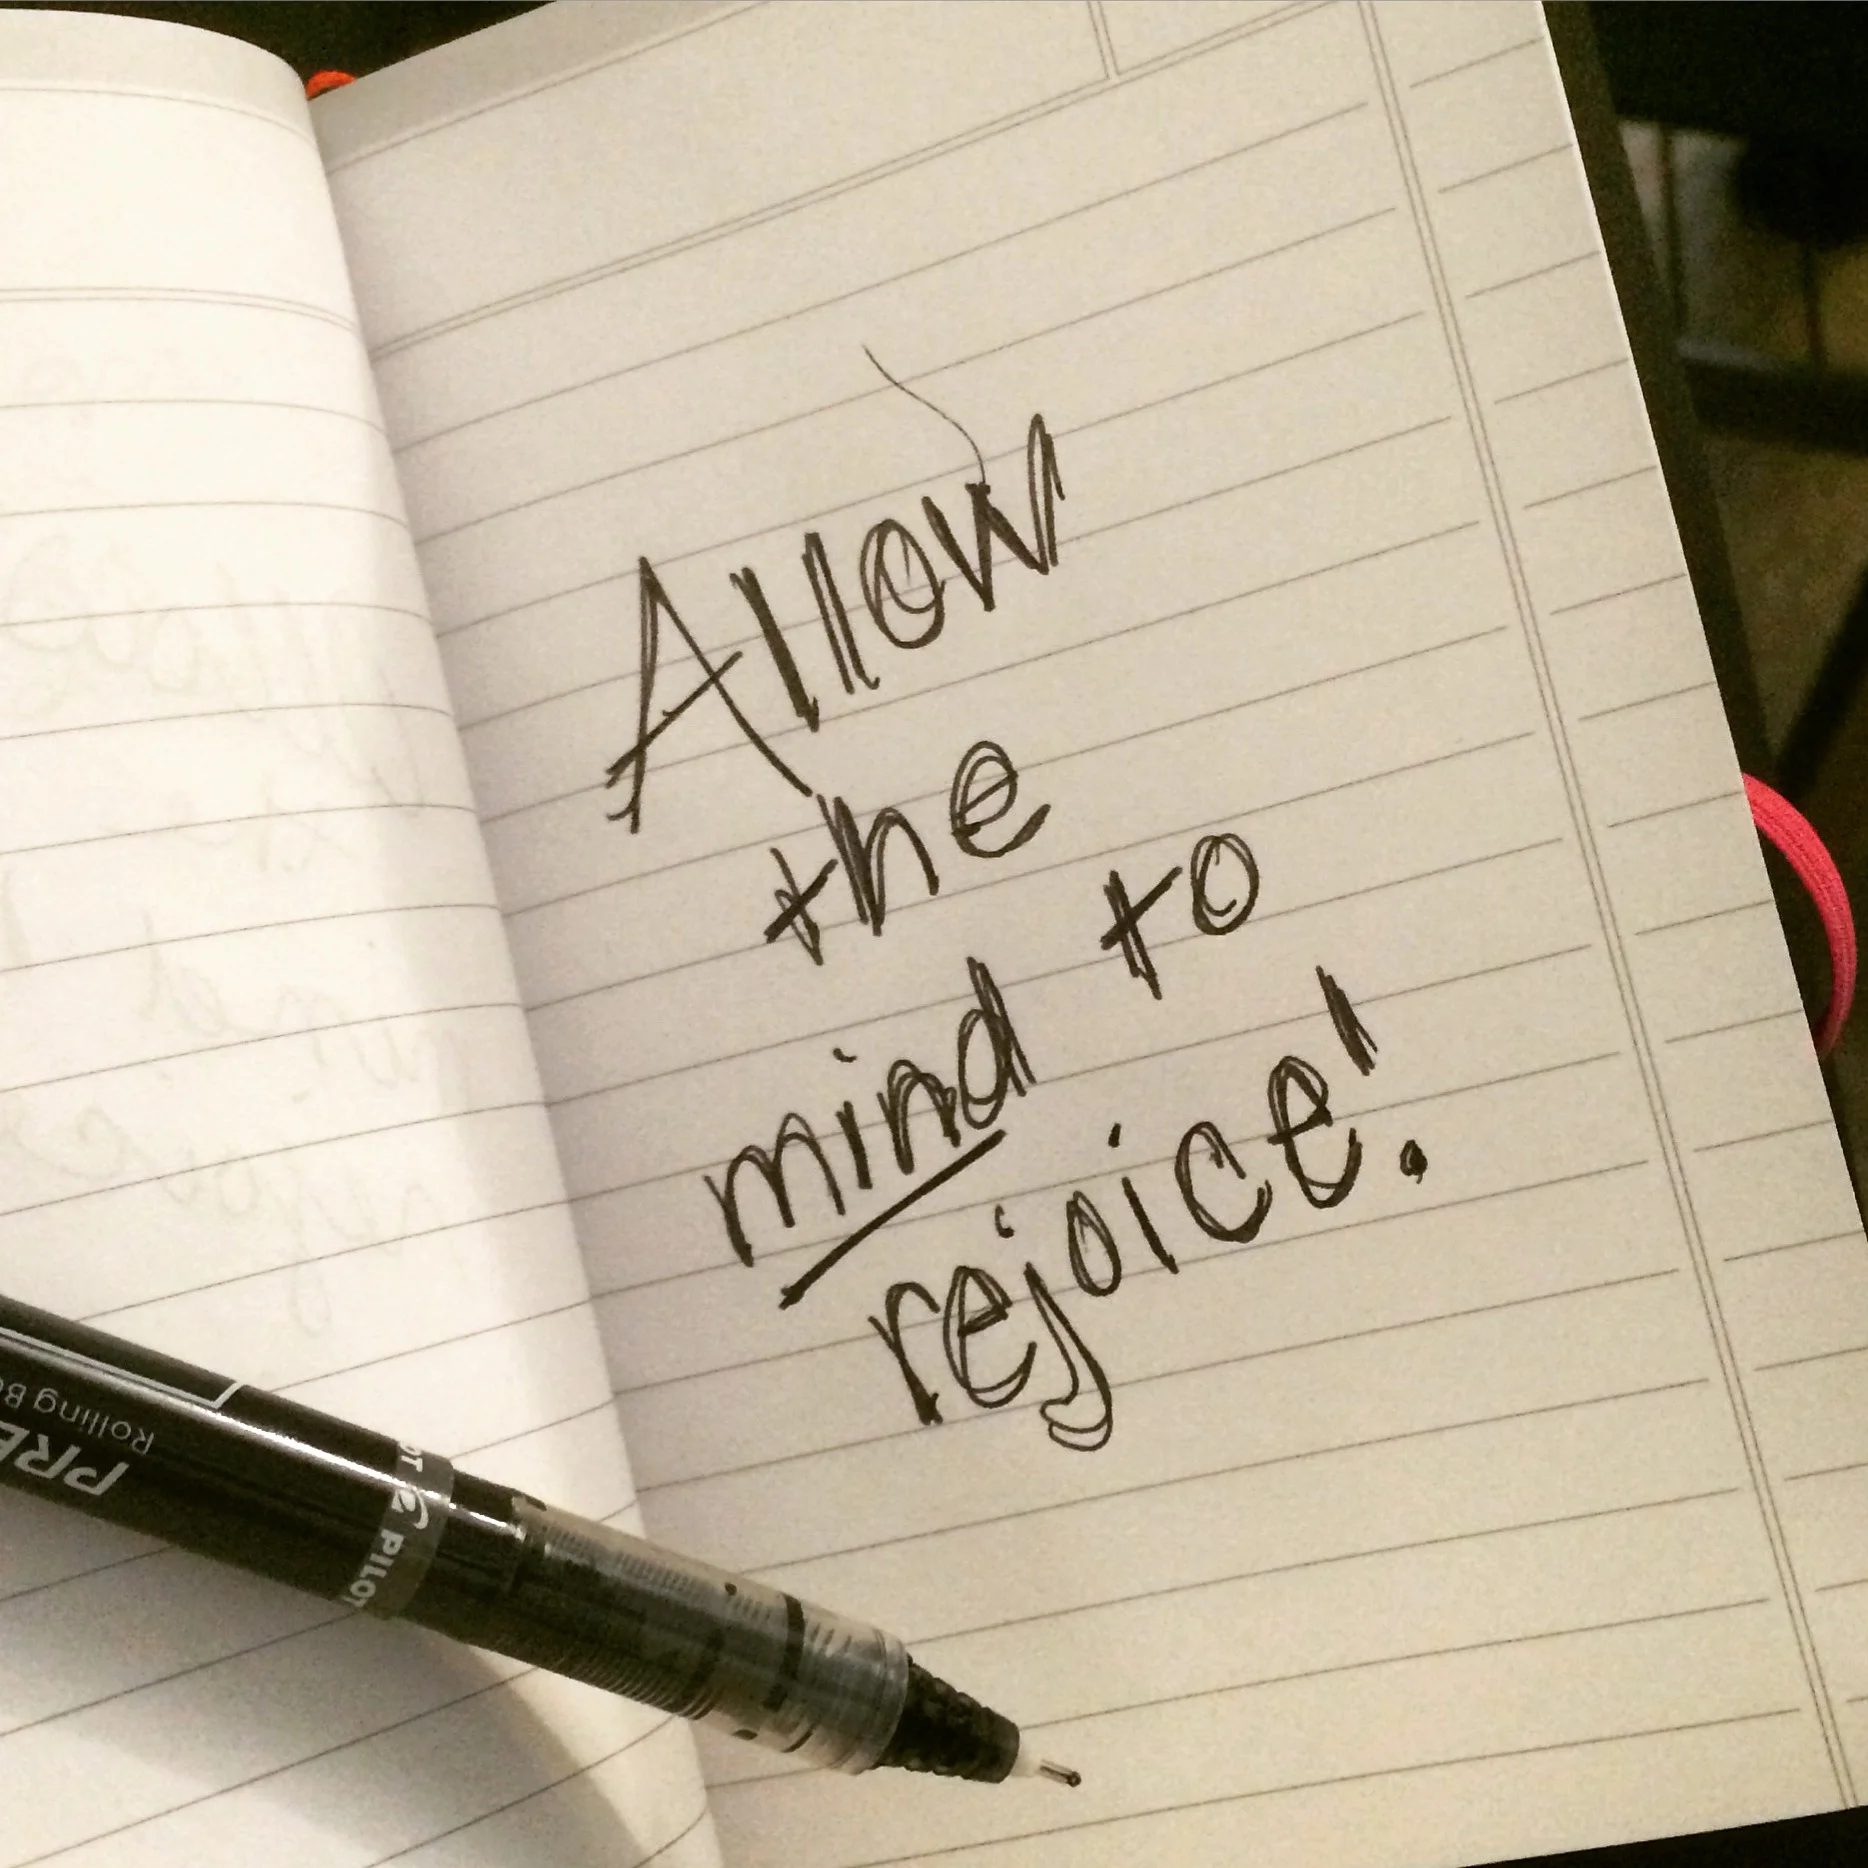 Allow
the
mind to
rejoice!
PRE
Rolling B
PILOT